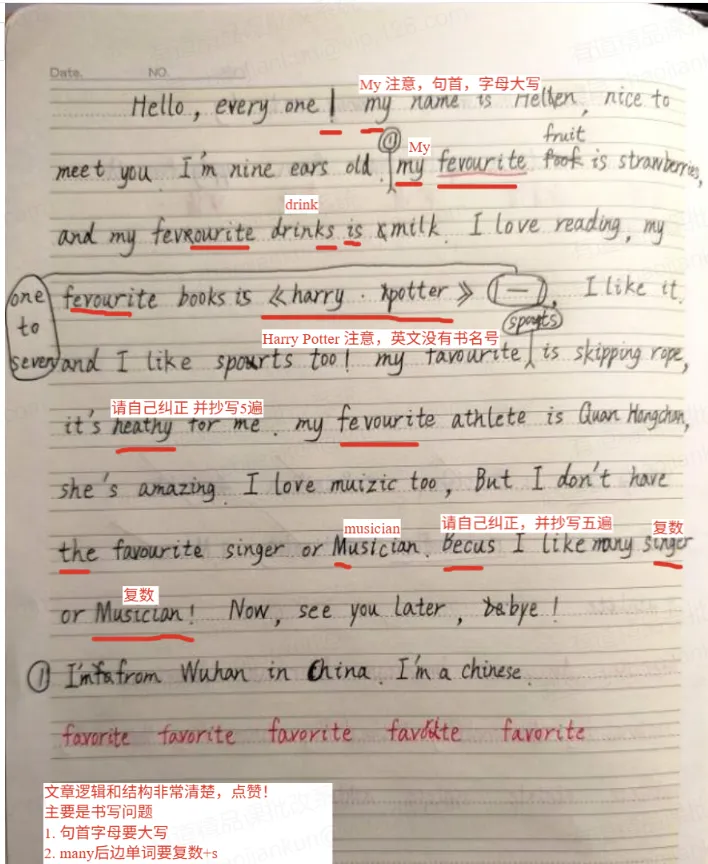 Date. NO.
My 注意，句首，字母大写
Hello, every one! my name is Hellen, nice to
① My fruit
meet you. I'm nine ears old. my fevourite is strawberries,
drink
and my fevourite drinks is milk. I love reading, my
one to seven
fevourite books is 《harry · potter》 (一), I like it.
Harry Potter 注意，英文没有书名号
sports
and I like spourts too! my favourite is skipping rope,
请自己纠正 并抄写5遍
it's heathy for me. my fevourite athlete is Quan Hongchan,
she's amazing. I love muizic too, But I don't have
musician 请自己纠正，并抄写五遍 复数
the favourite singer or Musician. Becus I like many singer
复数
or Musician! Now, see you later, bebye!
① I'm from Wuhan in China. I'm a chinese.
favorite favorite favorite favorite favorite
文章逻辑和结构非常清楚，点赞！
主要是书写问题
1. 句首字母要大写
2. many后边单词要复数+s